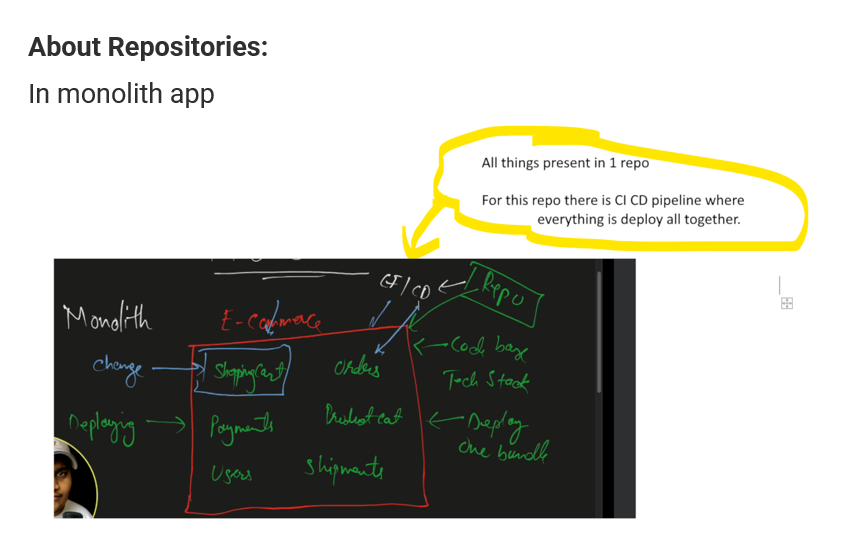 About Repositories:
In monolith app
All things present in 1 repo
For this repo there is CI CD pipeline where
everything is deploy all together.
CI/CD
1 Repo
Monolith
E-Commerce
change
Shopping Cart
Orders
Code base
Tech Stack
Deploying
Payments
Product cat
Deploy
One bundle
Users
Shipments